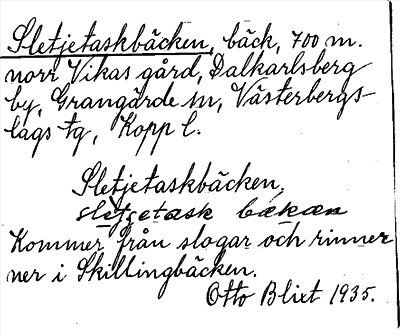 Sletjetaskbäcken, bäck, 700 m.
norr Vikas gård, Dalkarlsberg
by, Grangärde sn, Västerbergs-
lags tg, Kopp l.
Sletjetaskbäcken,
sletjetask bækæn
Kommer från slogar och rinner
ner i Skillingbäcken.
Otto Blixt 1935.